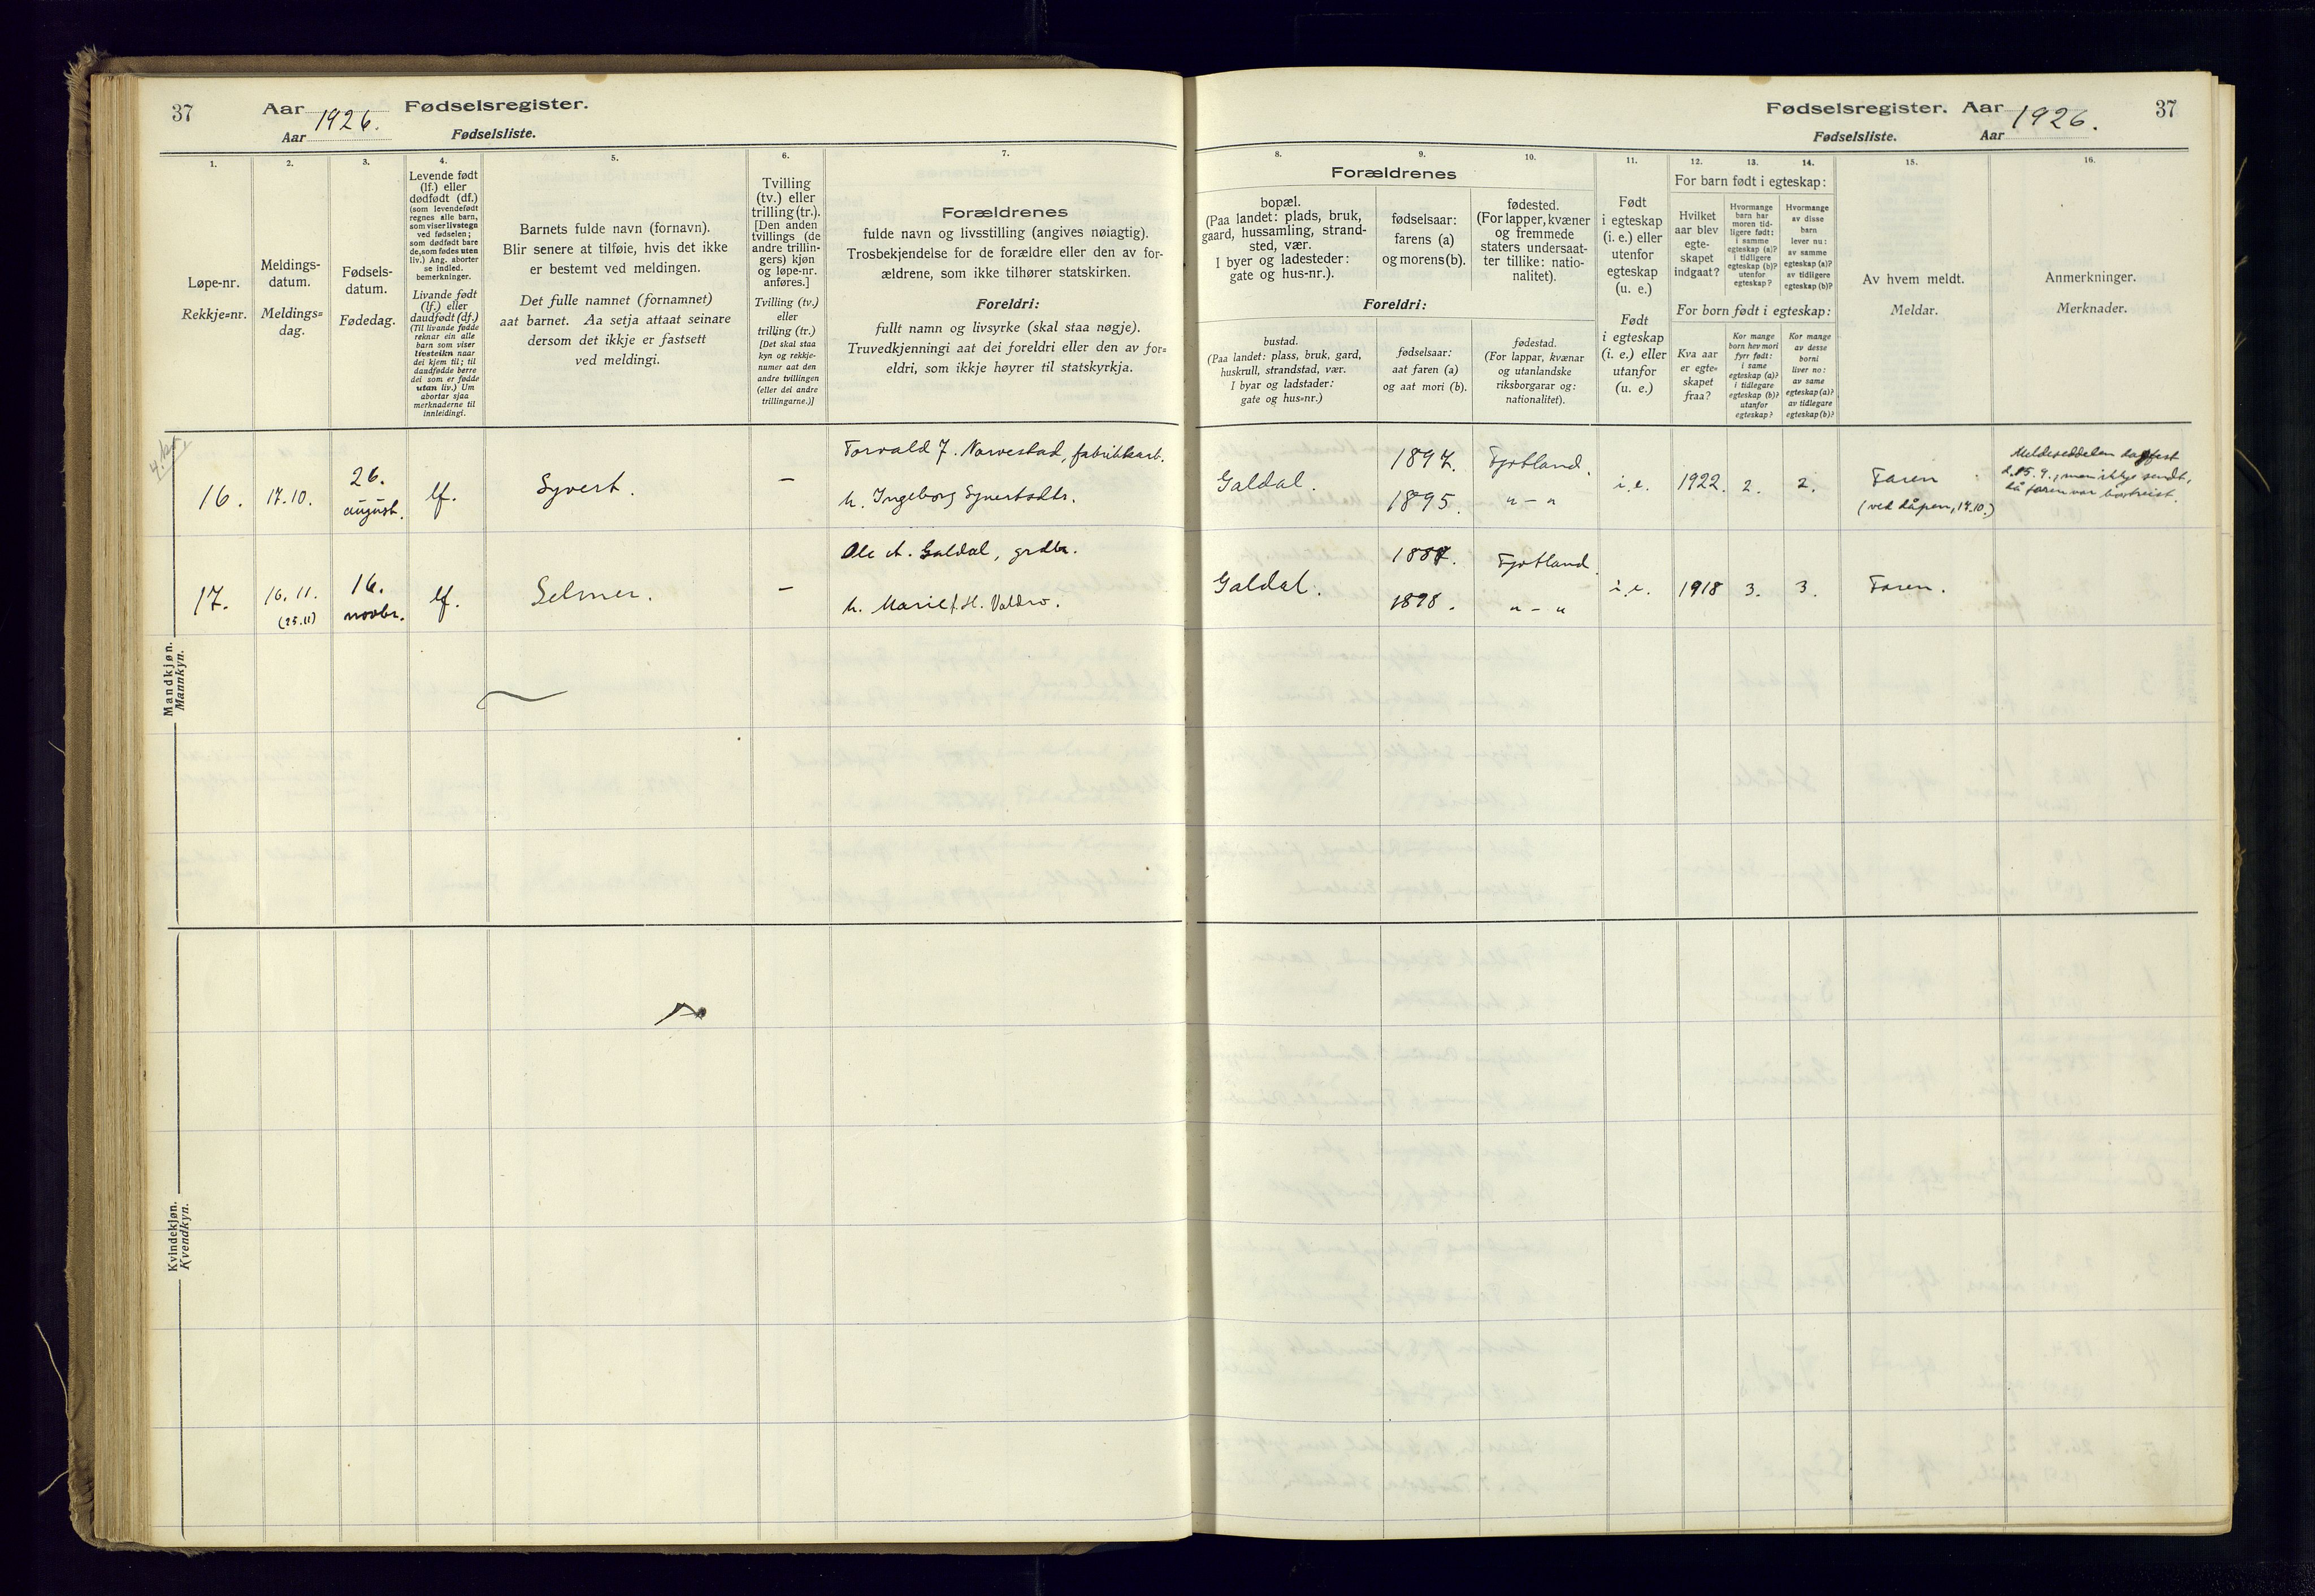 37
Aar 1926. Fødselsregister.
Aar Fødselsliste.
1.
Løpe-nr.
Rekkje=nr.
2.
Meldings-
datum.
Meldings=
dag.
3.
Fødsels-
datum.
Fødedag.
4.
Levende født
(lf.) eller
dødfødt (df.)
(som levendefødt
regnes alle barn,
som viser livstegn
ved fødselen;
som dødfødt bare
de, som fødes uten
liv.) Ang. aborter
se indled.
bemerkninger.
Livande født
(lf.) eller
daudfødt (df.)
(Til livande fødde
reknar ein alle
barn som viser
livsteikn naar
dei kjem til; til
daudfødde berre
dei som er fødde
utan liv.) Um
abortar sjaa
merknaderne til
innleidingi.
5.
Barnets fulde navn (fornavn).
Blir senere at tilføie, hvis det ikke
er bestemt ved meldingen.
Det fulle namnet (fornamnet)
aat barnet. Aa setja attaat seinare
dersom det ikkje er fastsett
ved meldingi.
6.
Tvilling
(tv.) eller
trilling (tr.).
[Den anden
tvillings (de
andre trillin-
gers) kjøn
og løpe-nr.
anføres.]
Tvilling (tv.)
eller
trilling (tr.)
[Det skal staa
kyn og rekkje-
numer aat den
andre tvillingen
(eller dei andre
trillingarne.)]
7.
Forældrenes
fulde navn og livsstilling (angives nøiagtig).
Trosbekjendelse for de forældre eller den av for-
ældrene, som ikke tilhører statskirken.
Foreldri:
fullt namn og livsyrke (skal staa nøgje).
Truvedkjenningi aat dei foreldri eller den av for=
eldri, som ikkje høyrer til statskyrkja.
16.
17.10.
26.
august.
lf.
Syvert.
–
Torvald J. Narvestad, fabrikkarb.
h. Ingeborg Syvertsdtr.
17.
16.11.
(25.11)
16.
novbr.
lf.
Selmer.
–
Ole A. Galdal, grdbr.
h. Marie f. H. Valdro.
Mandkjøn.
Mannkyn.
Kvindekjøn.
Kvendkyn.
Fødselsregister. Aar 1926. 37
Fødselsliste. Aar
8.
Forældrenes
bopæl.
(Paa landet: plads, bruk,
gaard, hussamling, strand-
sted, vær.
I byer og ladesteder:
gate og hus-nr.).
Foreldri:
bustad.
(Paa landet: plass, bruk, gard,
huskrull, strandstad, vær.
I byar og ladstader:
gate og hus=nr.)
9.
fødselsaar:
farens (a)
og morens (b).
fødselsaar:
aat faren (a)
og aat mori (b).
10.
fødested.
(For lapper, kvæner
og fremmede
staters undersaat-
ter tillike: natio-
nalitet).
fødestad.
(For lappar, kvænar
og utanlandske
riksborgarar og:
nationalitet).
11.
Født
i egteskap
(i. e.) eller
utenfor
egteskap
(u. e.)
Født
i egteskap
(i. e.) eller
utanfor
(u. e.)
For barn født i egteskap:
12.
Hvilket
aar blev
egte-
skapet
indgaat?
13.
Hvormange
barn har
moren tid-
ligere født:
i samme
egteskap (a)?
i tidligere
egteskap (b)?
utenfor
egteskap?
14.
Hvormange
av disse
barn
lever nu:
av samme
egteskap (a)?
av tidligere
egteskap (b)?
For born født i egteskap:
Kva aar
er egte=
skapet
fraa?
Kor mange
born hev mori
fyrr født:
i same
egteskap (a)?
i tidlegare
egteskap (b)?
utanfor
egteskap?
Kor mange
av desse
borni
liver no:
av same
egteskap (a)?
av tidlegare
egteskap (b)?
15.
Av hvem meldt.
Meldar.
16.
Anmerkninger.
Merknader.
Galdal.
1897.
1895.
Fjotland.
" – "
i.e.
1922.
2.
2.
Faren
(ved dåpen, 17.10.)
Meldeseddelen dagfest
d. 15.9., men ikkje sendt,
då faren var bortreist.
Galdal.
1887.
1898.
Fjotland.
" – "
i.e.
1918
3.
3.
Faren.